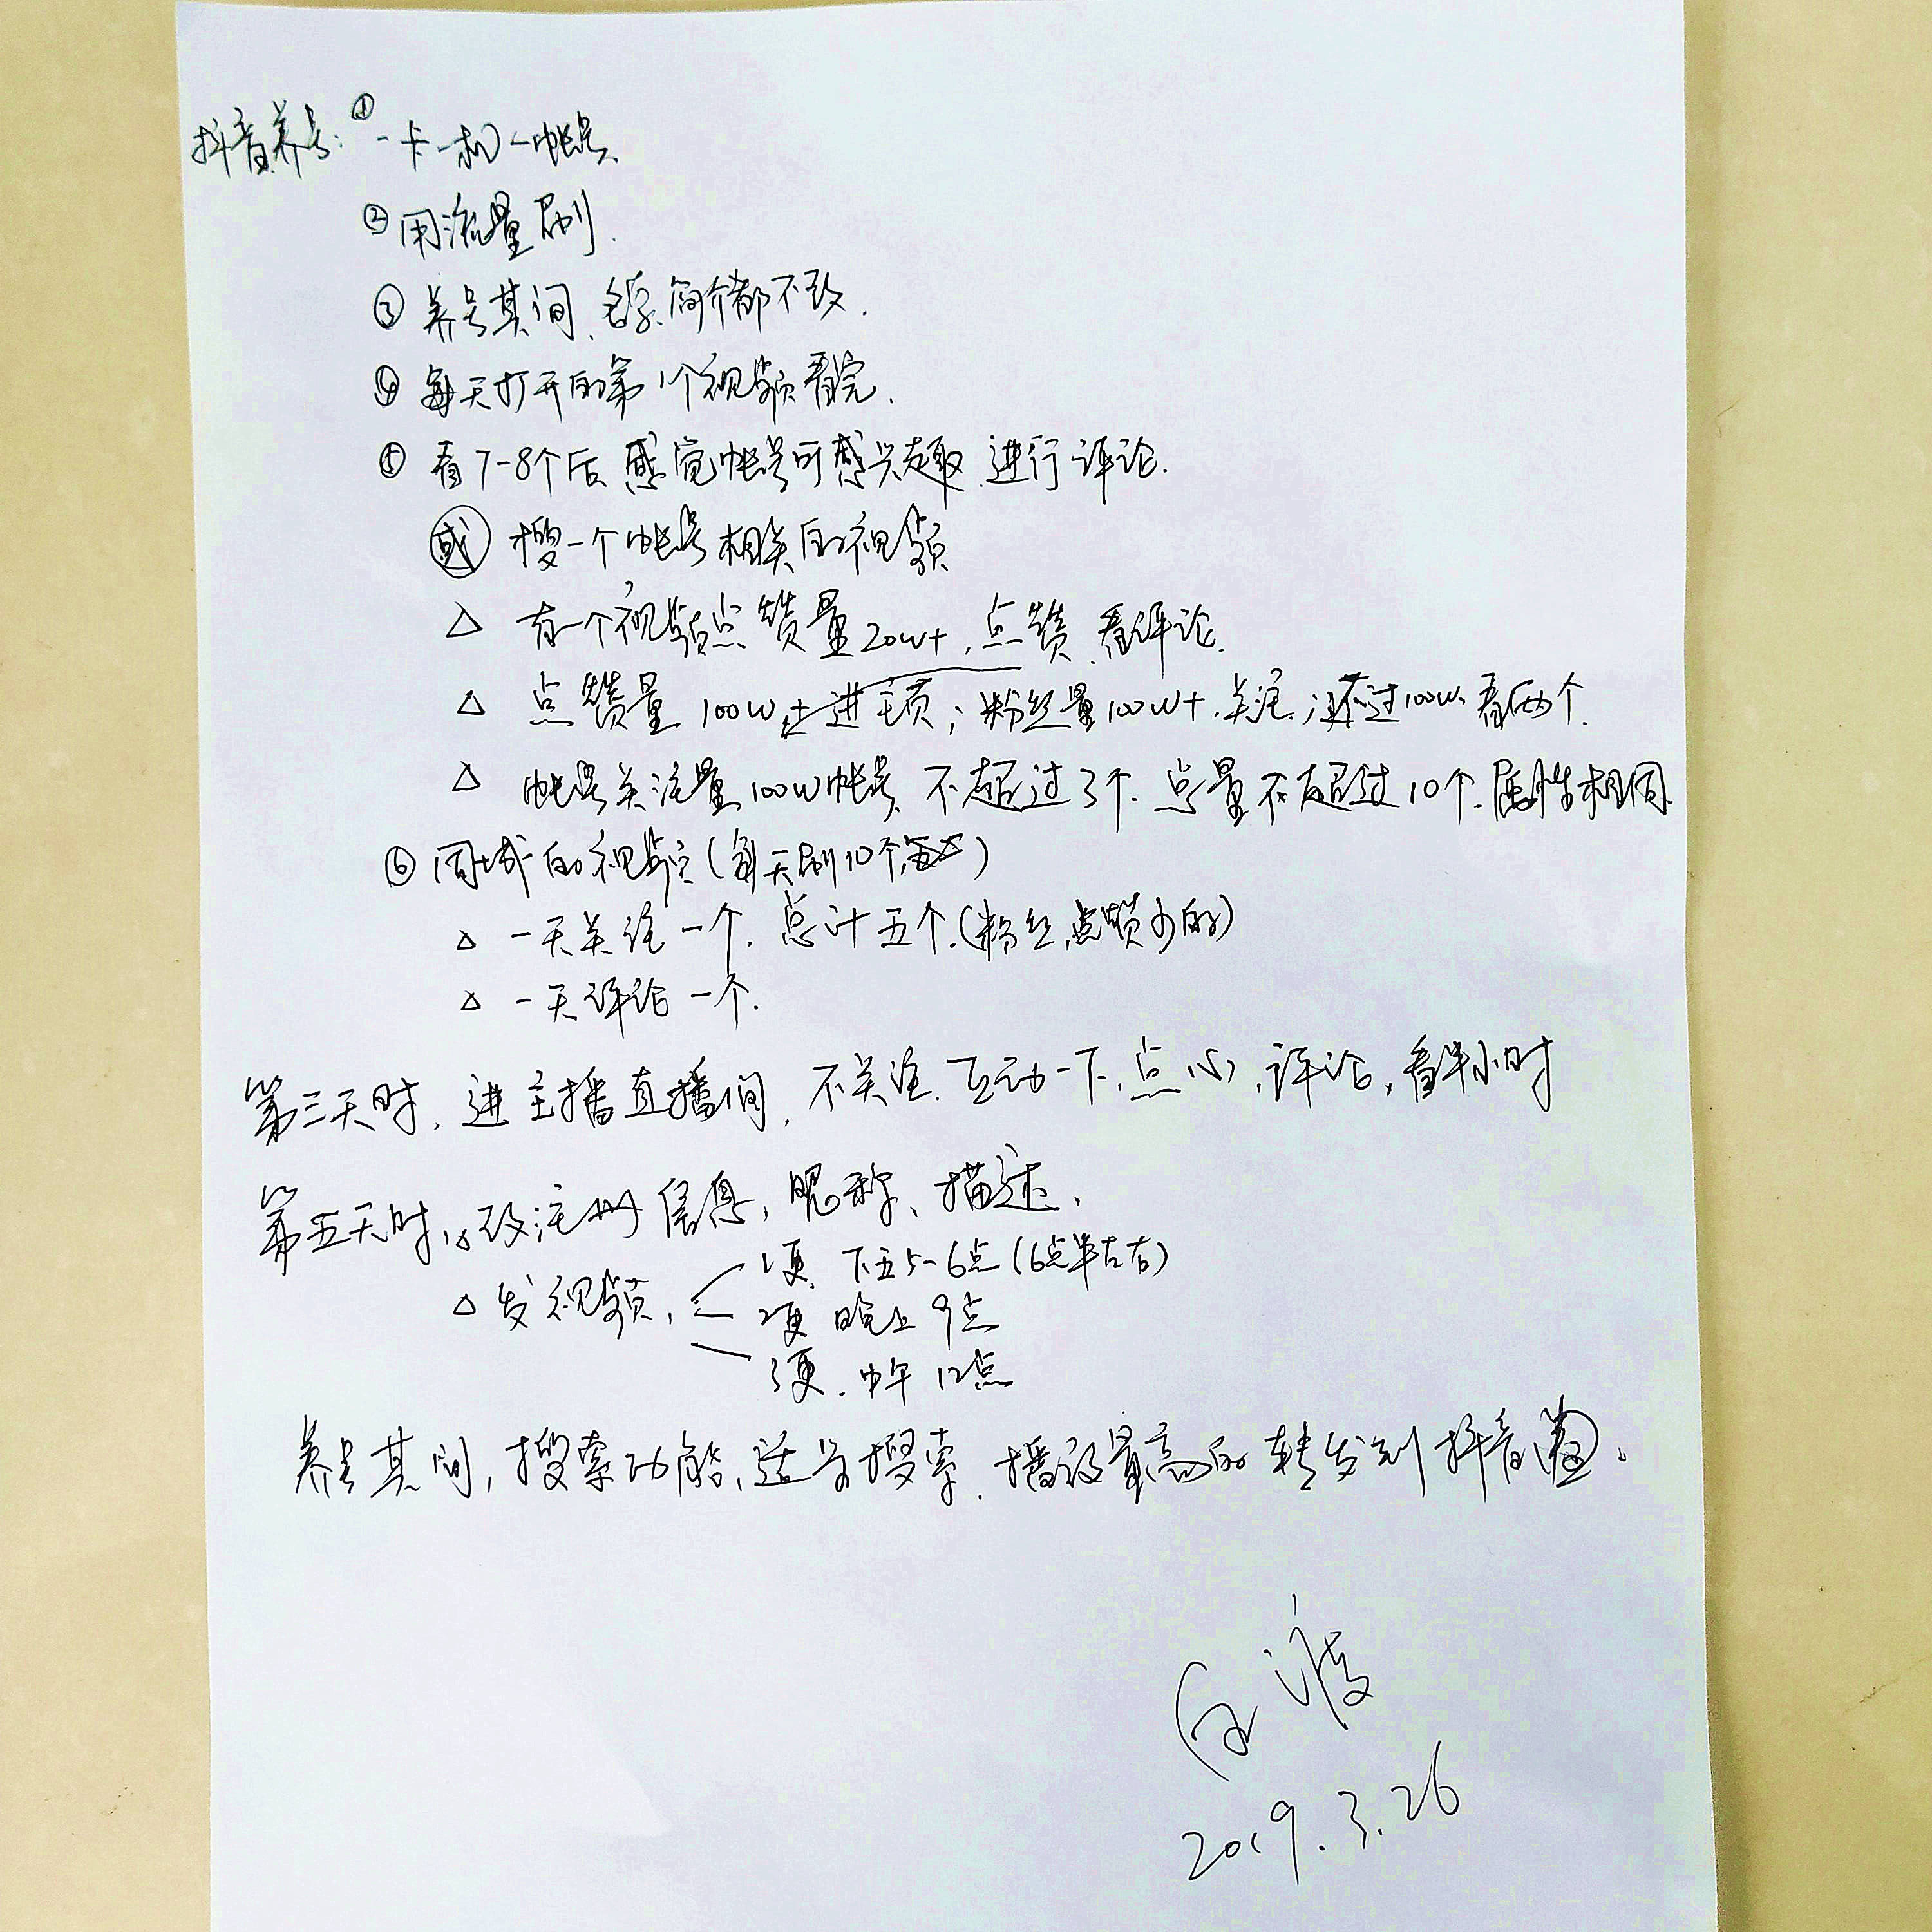 抖音养号：①一卡一机一帐号.
②用流量刷.
③养号其间、名字、简介都不改.
④每天打开的第1个视频看完.
⑤看7-8个后、感觉帐号可感兴趣.进行评论.
或 搜一个帐号相关的视频
△ 有一个视频点赞量20w+,点赞.看评论.
△ 点赞量100w+进主页;粉丝量100w+.关注.;不过100w.看两个.
△ 帐号关注量100w帐号、不超过3个.点量不超过10个.属性相同.
⑥同城的视频(每天刷10个)
△ 一天关注一个.总计五个.(粉丝.点赞少的)
△ 一天评论一个.
第三天时,进主播直播间,不关注.互动一下,点心,评论,看半小时
第五天时,△改注册信息,昵称、描述、
△发视频, 1更.下五5-6点(6点半左右)
2更 晚上9点
3更.中午12点
养号其间,搜索功能,适当搜索.播放量高的转发到抖音.
2019.3.26